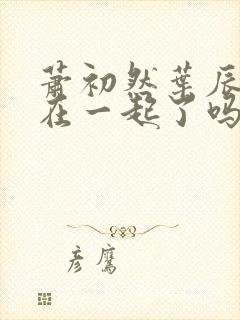 萧初然叶辰
在一起了吗
彦鹰